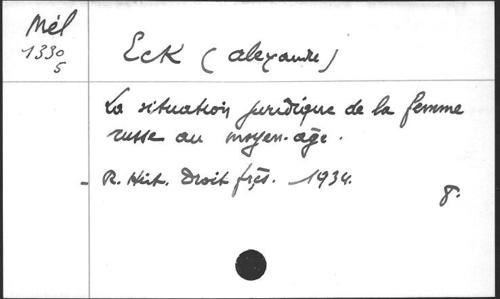 Mél
1330
5
Eck (Alexandre)
La situation juridique de la femme
russe au moyen-âge.
- R. Hist. Droit frçs. 1934.
8.